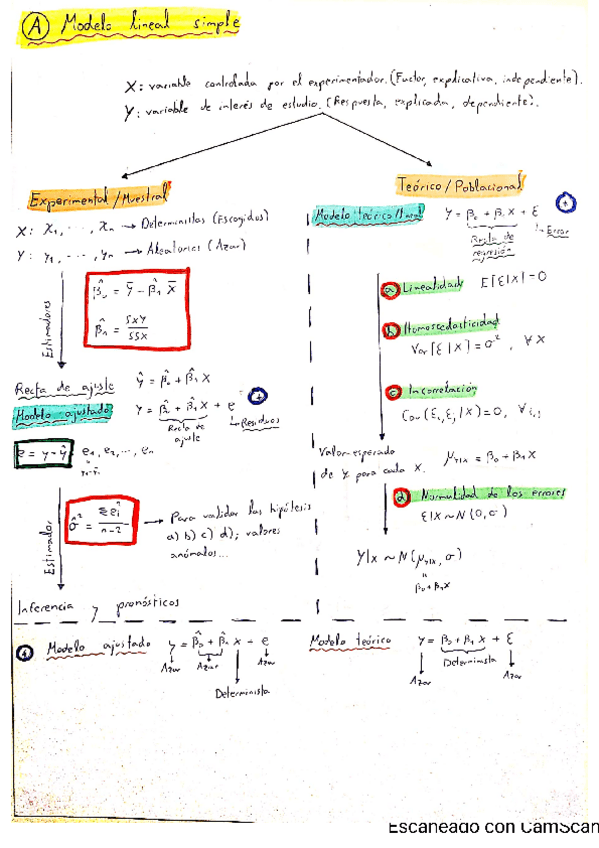 A Modelo lineal simple
X: variable controlada por el experimentador. (Factor, explicativa, independiente).
Y: variable de interés de estudio. (Respuesta, explicada, dependiente).
Experimental/Muestral
X: x₁, ..., xₙ → Deterministas (Escogidos)
Y: y₁, ..., yₙ → Aleatorios (Azar)
Estimadores
β̂₀ = ȳ - β̂₁ x̄
β̂₁ = SXY / SSX
Recta de ajuste ŷ = β̂₀ + β̂₁ x
Modelo ajustado y = β̂₀ + β̂₁ x + e
Recta de ajuste
Residuos
e = y - ŷ e₁, e₂, ..., eₙ
y₁-ŷ₁
Estimador
σ̂² = Σeᵢ² / n-2 → Para validar las hipótesis
a) b) c) d); valores
anómalos...
Inferencia y pronósticos
Teórico/Poblacional
Modelo teórico lineal Y = β₀ + β₁ X + ε
Recta de
regresión
Error
a Linealidad E[ε|X]=0
b Homoscedasticidad
Var[ε|X]=σ², ∀X
c Incorrelación
Cov(εᵢ, εⱼ|X)=0, ∀i,j
Valor esperado
de Y para cada X. μY|X = β₀ + β₁X
d Normalidad de los errores
ε|X ~ N(0,σ)
Y|X ~ N(μY|X, σ)
β₀+β₁X
Modelo ajustado y = β̂₀ + β̂₁ x + e
Azar Azar Azar
Determinista
Modelo teórico Y = β₀ + β₁ X + ε
Azar Determinista Azar
Escaneado con CamScan